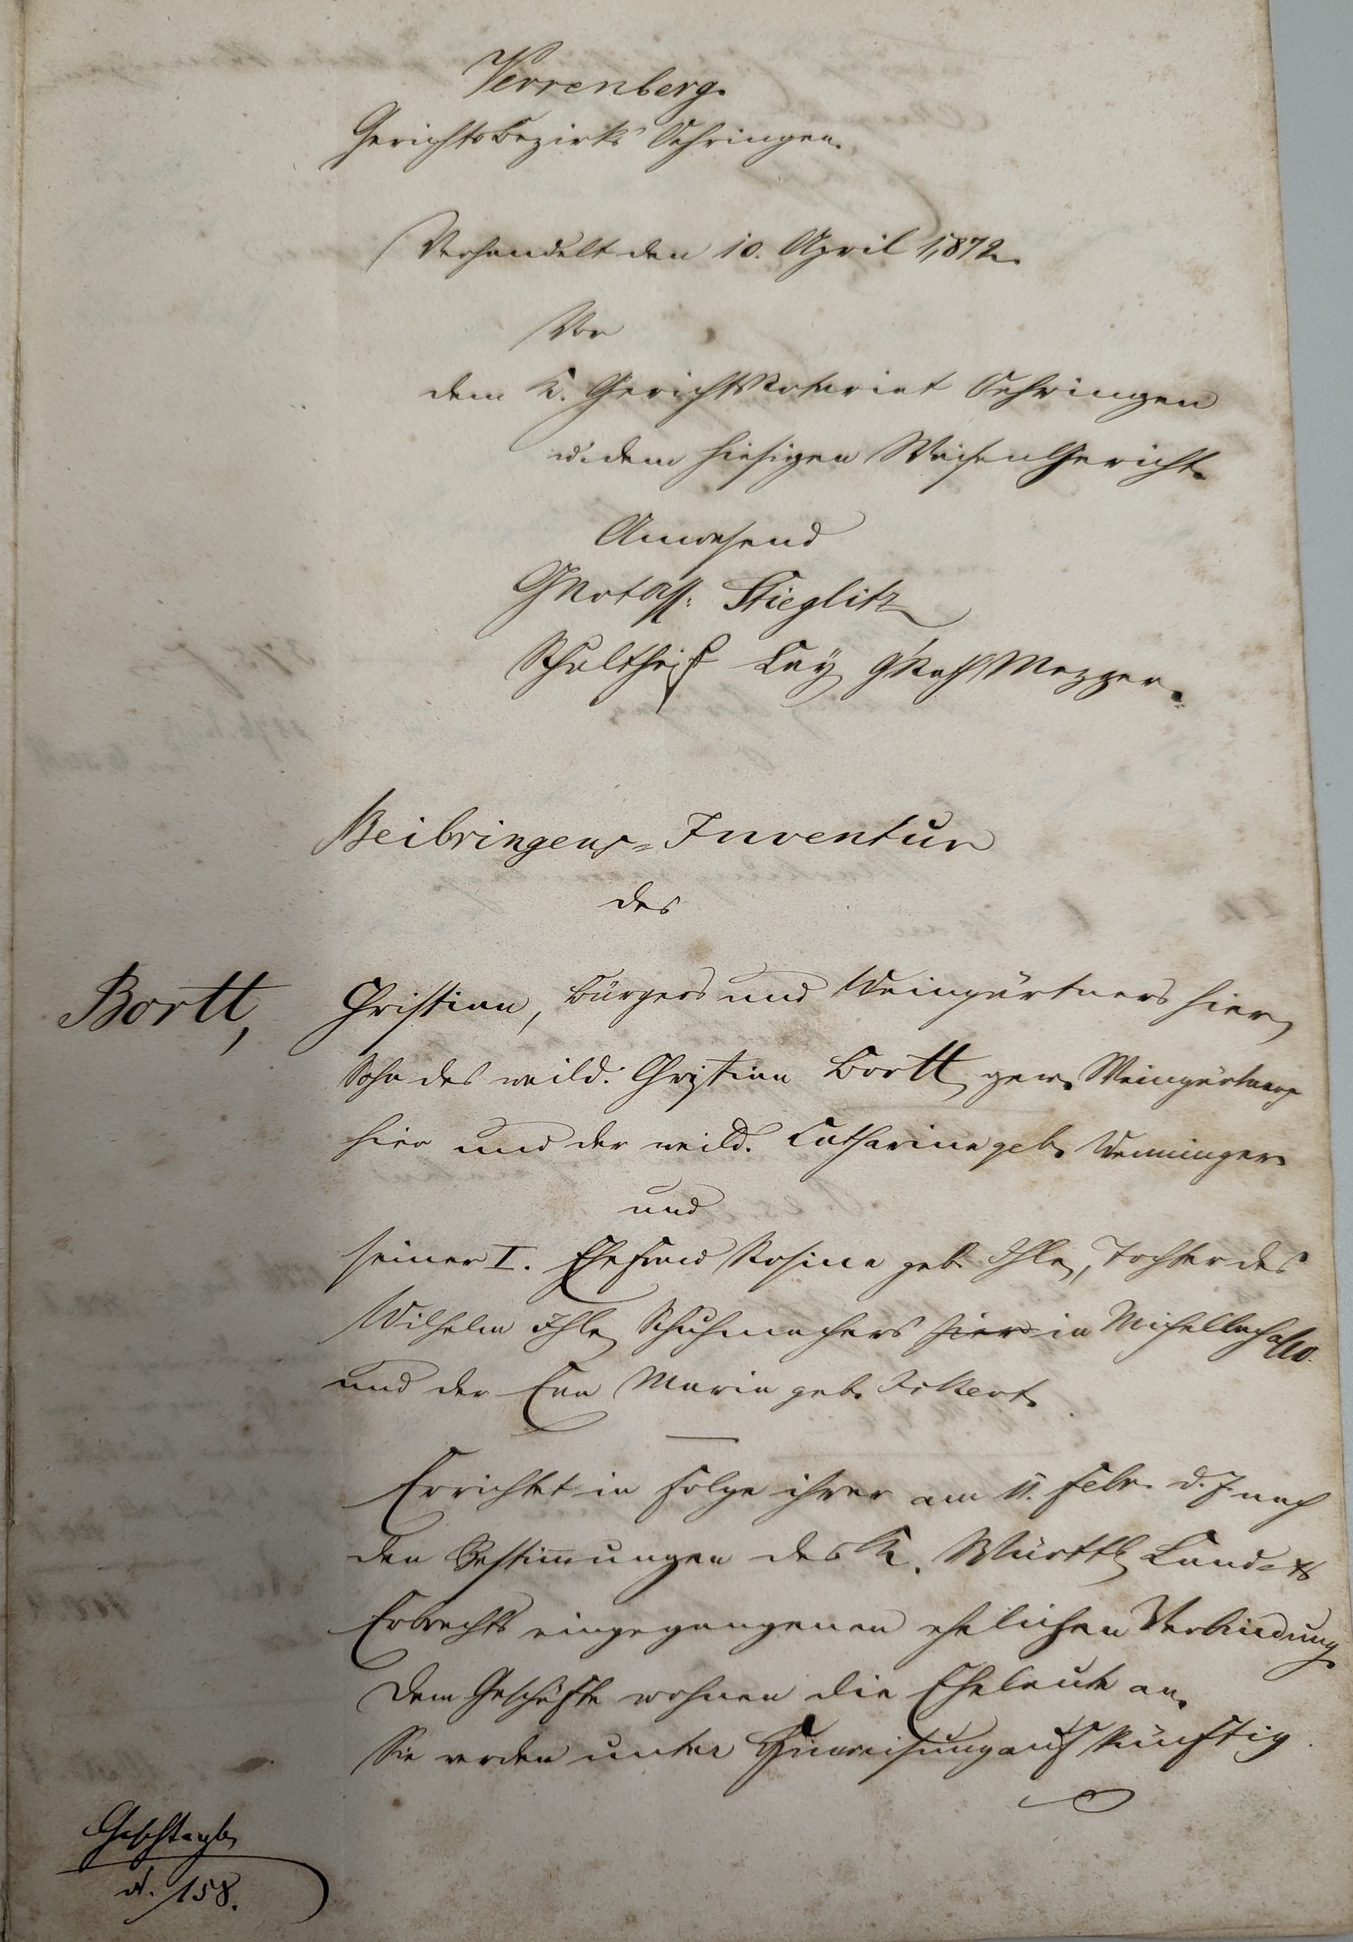 Verrenberg.
Gerichtsbezirks Oehringen.
Verhandelt den 10. April 1872.
Vor
dem K. Gerichtsnotariat Oehringen
u. dem hiesigen Waisengericht.
Anwesend
GNotAss. Stieglitz
Schultheiß Lay GRath Mezger.
Beibringens-Inventur
des
Bortt,
Christian, Bürgers und Weingärtners hier,
Sohn des weild. Christian Bortt, gew. Weingärtners
hier und der weild. Catharine geb. Wenninger.
und
seiner I. Ehefrau Rosine geb. Ihle, Tochter des
Wilhelm Ihle, Schuhmachers hier in Michelbach a/W.
und der Eva Maria geb. Eckert.
Errichtet in Folge ihrer am 11. Febr. d. J. nach
den Bestimmungen des K. Württb. Land- &
Erbrechts eingegangenen ehelichen Verbindung.
Dem Geschäfte wohnen die Eheleute an.
Sie werden unter Hinweisung auf künftig
GeschTagb.
N. 158.